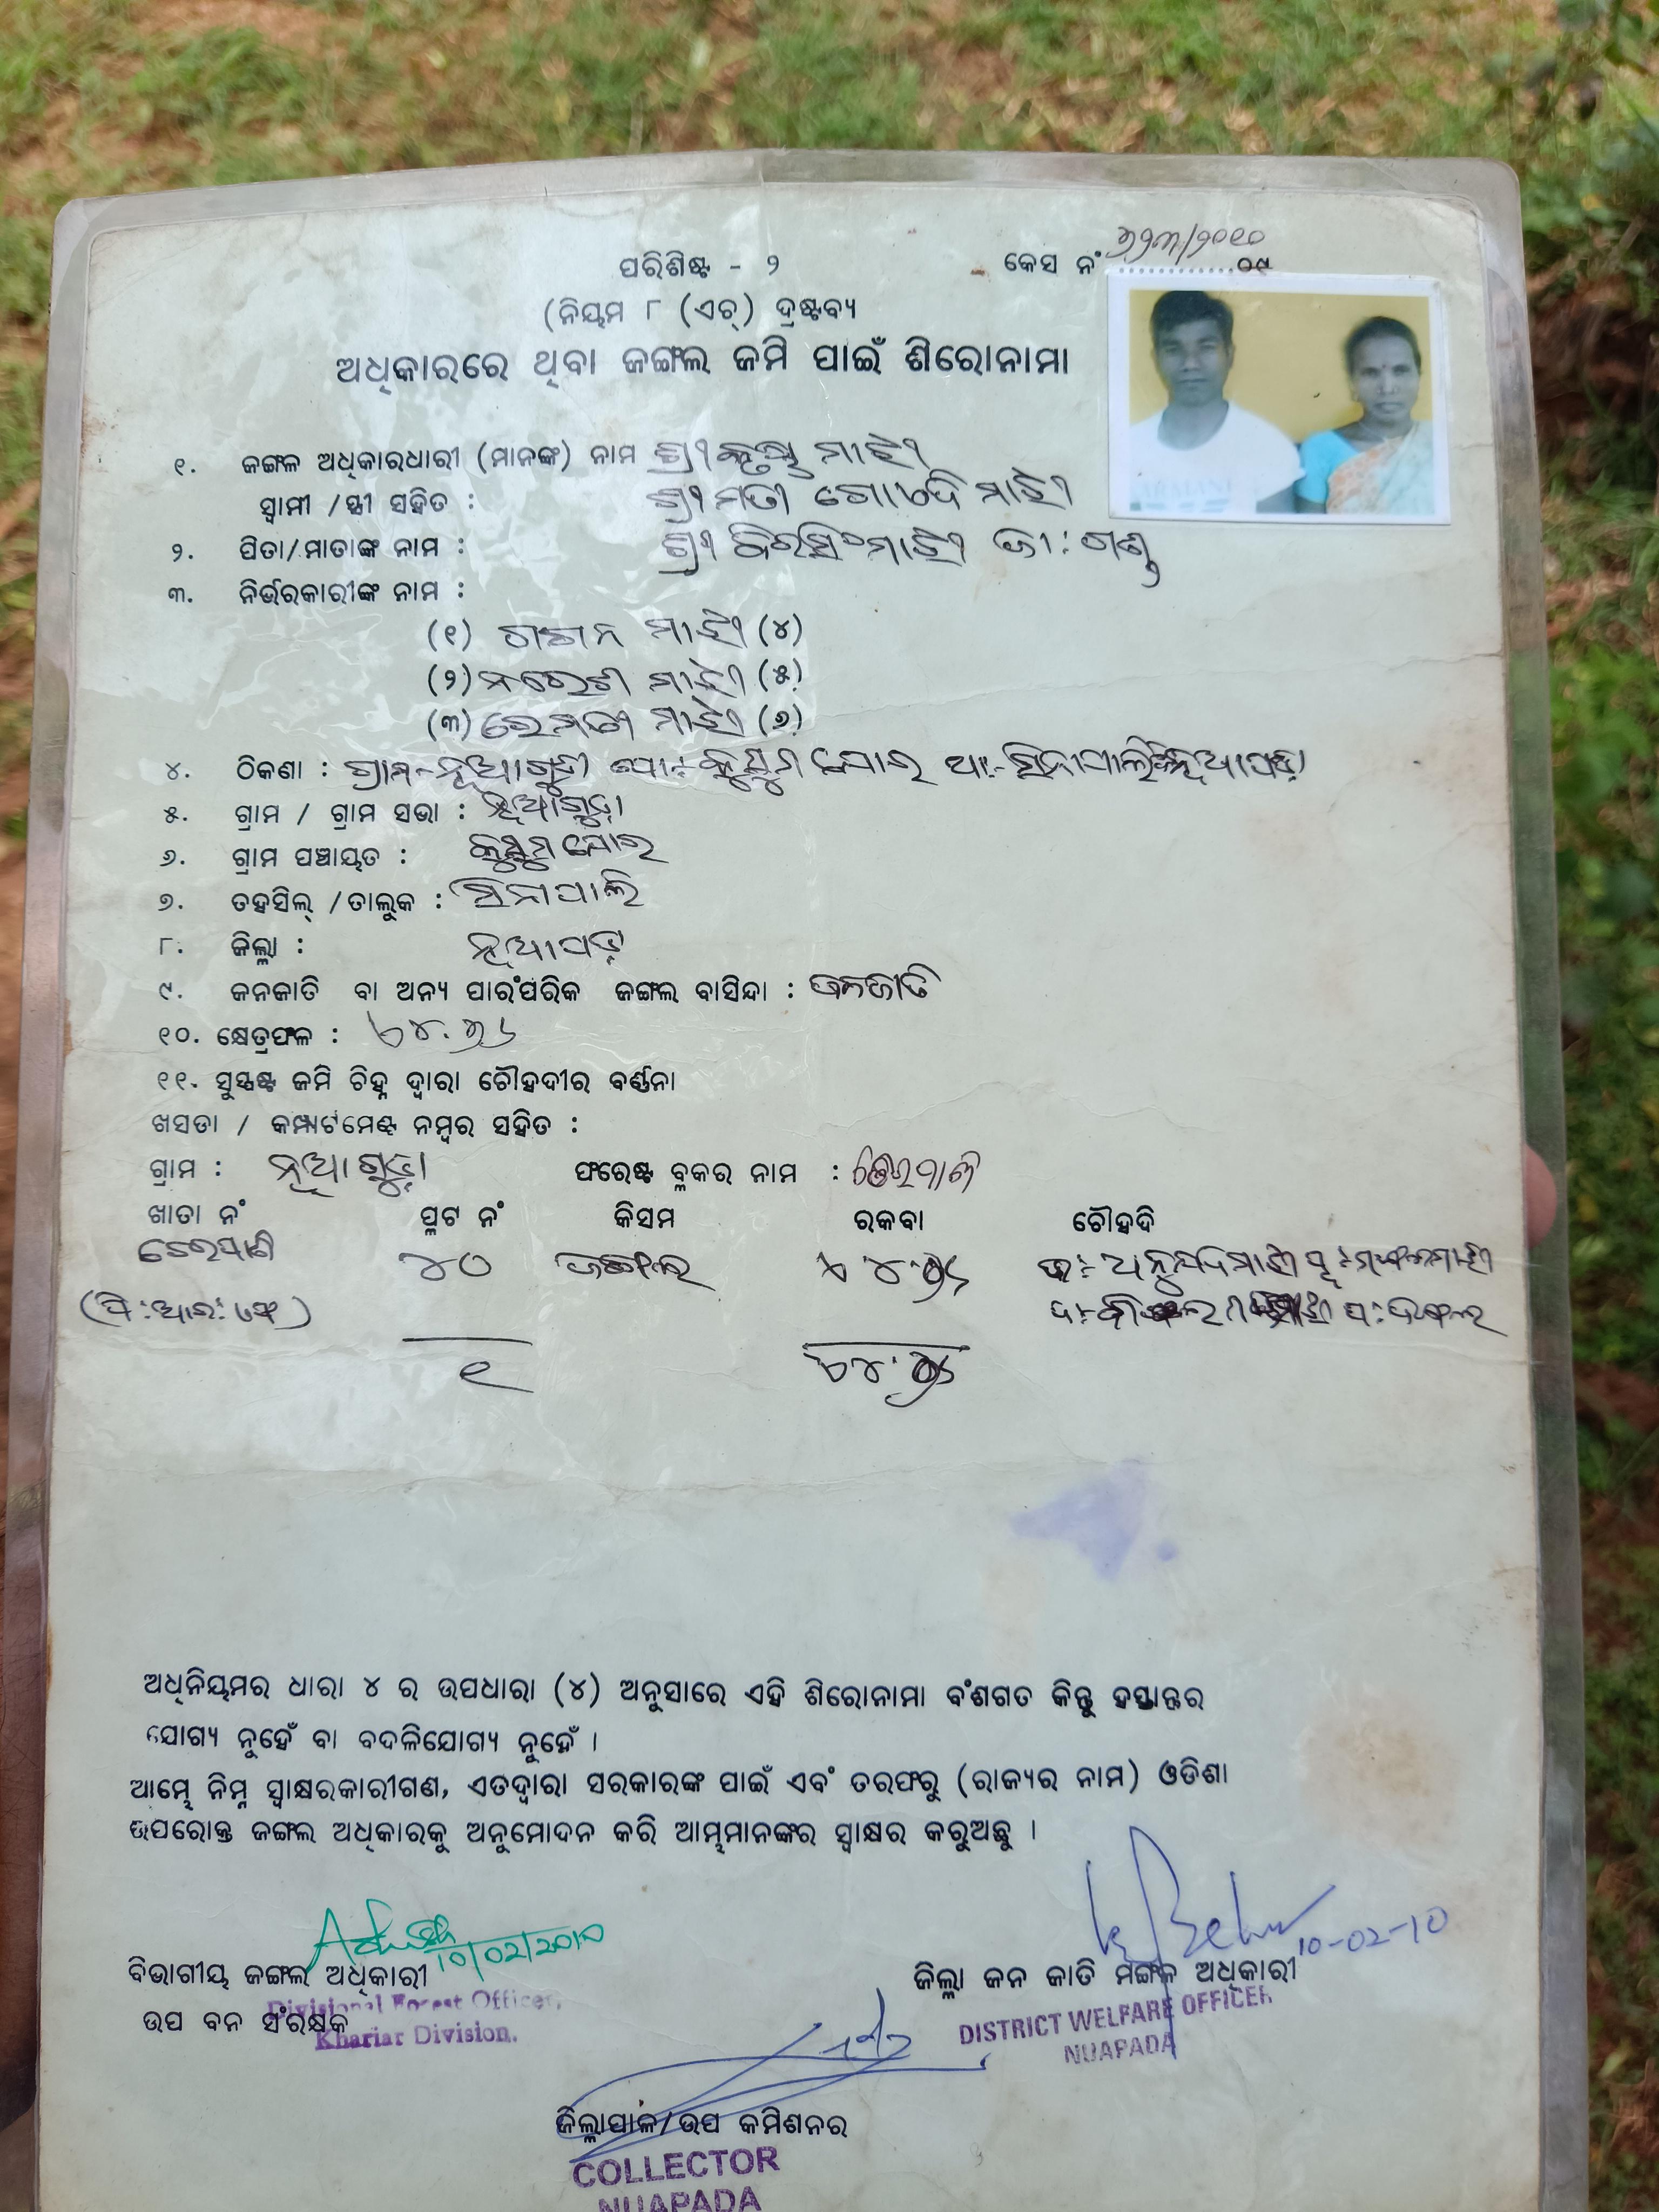 ପରିଶିଷ୍ଟ - ୨
କେସ ନଂ ୬୨୩/୨୦୧୦ ............୦୯
(ନିୟମ ୮ (ଏଚ୍) ଦ୍ରଷ୍ଟବ୍ୟ
ଅଧିକାରରେ ଥିବା ଜଙ୍ଗଲ ଜମି ପାଇଁ ଶିରୋନାମା
୧. ଜଙ୍ଗଲ ଅଧିକାରଧାରୀ (ମାନଙ୍କ) ନାମ ଶ୍ରୀ ମାଝୀ
ସ୍ୱାମୀ /ସ୍ତ୍ରୀ ସହିତ : ଶ୍ରୀମତୀ ମାଝୀ
୨. ପିତା/ମାତାଙ୍କ ନାମ : ଶ୍ରୀ ମାଝୀ ଜା: ଗଣ୍ଡ
୩. ନିର୍ଭରକାରୀଙ୍କ ନାମ :
(୧) ଗଗନ ମାଝୀ (୪)
(୨) ନରେଶ ମାଝୀ (୫)
(୩) ରେମତୀ ମାଝୀ (୬)
୪. ଠିକଣା : ଗ୍ରାମ-ନୂଆଗୁଡ଼ା ପୋ:- ସିନାପାଲି ନୂଆପଡ଼ା
୫. ଗ୍ରାମ / ଗ୍ରାମ ସଭା : ନୂଆଗୁଡ଼ା
୬. ଗ୍ରାମ ପଞ୍ଚାୟତ :
୭. ତହସିଲ୍ /ତାଲୁକ : ସିନାପାଲି
୮. ଜିଲ୍ଲା : ନୂଆପଡ଼ା
୯. ଜନଜାତି ବା ଅନ୍ୟ ପାରଂପରିକ ଜଙ୍ଗଲ ବାସିନ୍ଦା : ଜନଜାତି
୧୦. କ୍ଷେତ୍ରଫଳ :
୧୧. ସୁସ୍ପଷ୍ଟ ଜମି ଚିହ୍ନ ଦ୍ୱାରା ଚୌହଦୀର ବର୍ଣ୍ଣନା
ଖସଡା / କମ୍ପାର୍ଟମେଣ୍ଟ ନମ୍ବର ସହିତ :
ଗ୍ରାମ : ନୂଆଗୁଡ଼ା ଫରେଷ୍ଟ ବ୍ଲକର ନାମ :
ଖାତା ନଂ ପ୍ଲଟ ନଂ କିସମ ରକବା ଚୌହଦି
୪୦ ଜଙ୍ଗଲ
(ପି:ଆର:ଏଫ)
୧
ଅଧିନିୟମର ଧାରା ୪ ର ଉପଧାରା (୪) ଅନୁସାରେ ଏହି ଶିରୋନାମା ବଂଶଗତ କିନ୍ତୁ ହସ୍ତାନ୍ତର
ଯୋଗ୍ୟ ନୁହେଁ ବା ବଦଳିଯୋଗ୍ୟ ନୁହେଁ ।
ଆମ୍ଭେ ନିମ୍ନ ସ୍ୱାକ୍ଷରକାରୀଗଣ, ଏତଦ୍ୱାରା ସରକାରଙ୍କ ପାଇଁ ଏବଂ ତରଫରୁ (ରାଜ୍ୟର ନାମ) ଓଡିଶା
ଉପରୋକ୍ତ ଜଙ୍ଗଲ ଅଧିକାରକୁ ଅନୁମୋଦନ କରି ଆମ୍ଭମାନଙ୍କର ସ୍ୱାକ୍ଷର କରୁଅଛୁ ।
10/02/2010
10-02-10
ବିଭାଗୀୟ ଜଙ୍ଗଲ ଅଧିକାରୀ
ଜିଲ୍ଲା ଜନ ଜାତି ମଙ୍ଗଳ ଅଧିକାରୀ
ଉପ ବନ ସଂରକ୍ଷକ
Divisional Forest Officer,
Khariar Division.
DISTRICT WELFARE OFFICER
NUAPADA
ଜିଲ୍ଲାପାଳ/ଉପ କମିଶନର
COLLECTOR
NUAPADA